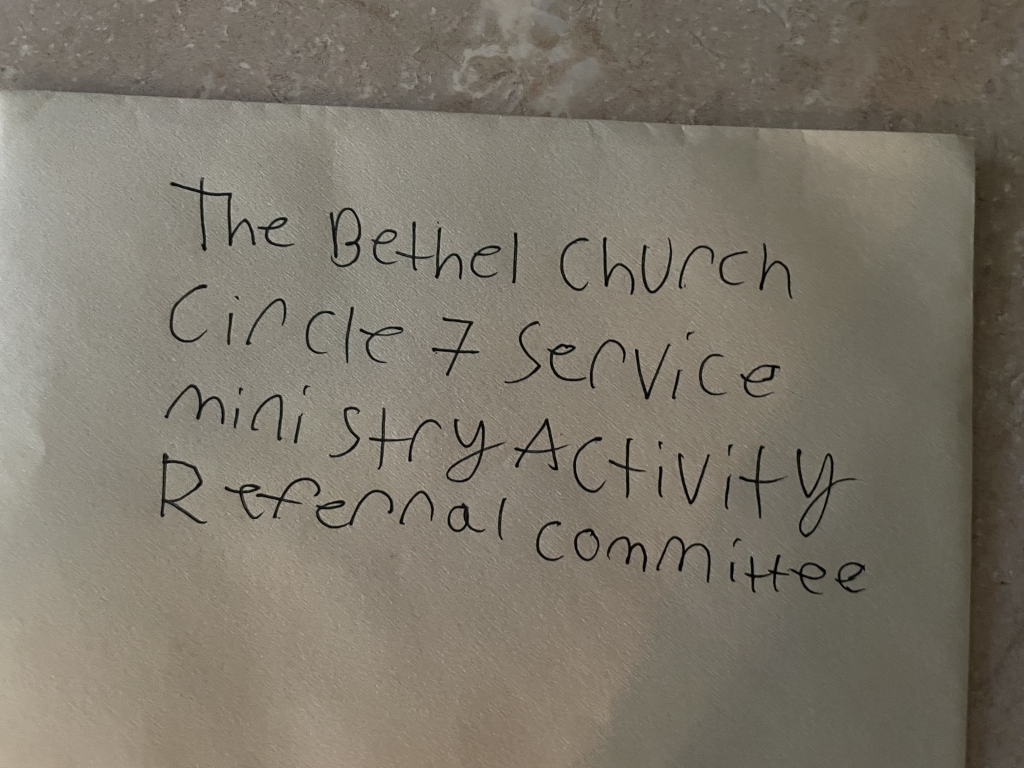 The Bethel Church
Circle 7 Service
ministry Activity
Referral committee